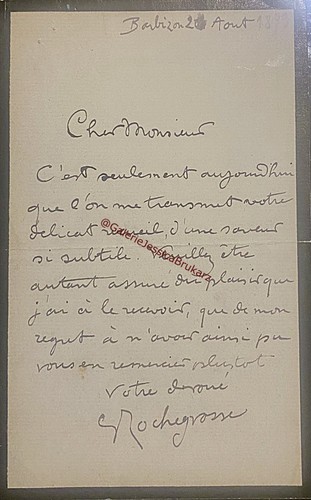 Barbizon 26 Aout
Cher Monsieur
C'est seulement aujourd'hui
que l'on me transmet votre
délicat recueil, d'une saveur
si subtile. Veuillez être
autant assuré du plaisir que
j'ai à le recevoir, que de mon
regret à n'avoir ainsi pu
vous en remercier plustot
Votre dévoué
GRochegrosse
@GalerieJessicaBrukarz